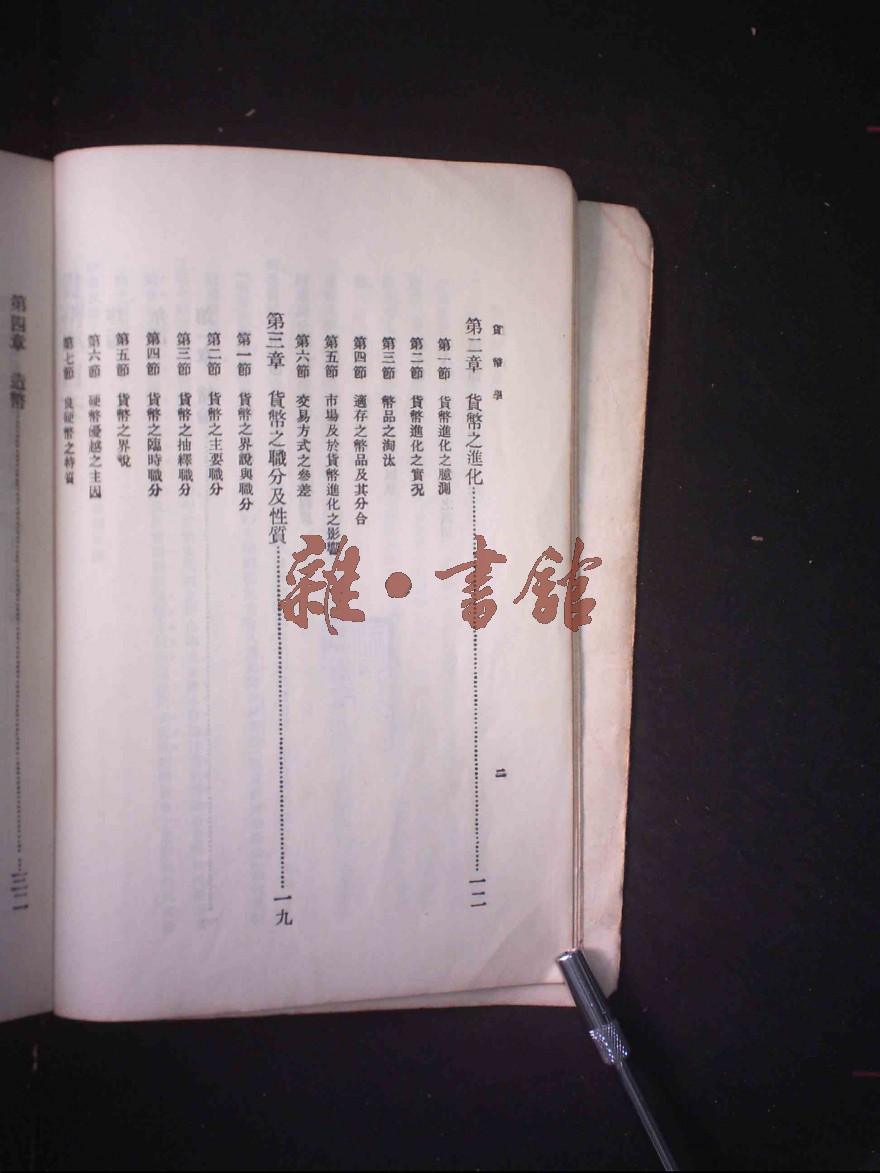 貨幣學
二
第二章 貨幣之進化……一二
第一節 貨幣進化之臆測
第二節 貨幣進化之實況
第三節 幣品之淘汰
第四節 適存之幣品及其分合
第五節 市場及於貨幣進化之影響
第六節 交易方式之參差
第三章 貨幣之職分及性質……一九
第一節 貨幣之界說與職分
第二節 貨幣之主要職分
第三節 貨幣之抽釋職分
第四節 貨幣之臨時職分
第五節 貨幣之界說
第六節 硬幣優越之主因
第七節 良硬幣之特質
第四章 造幣
雜·書館